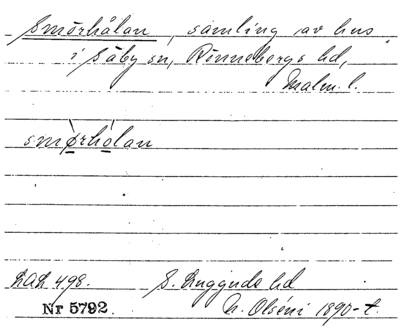 Smörhålan, samling av hus
i Säby sn, Rönnebergs hd,
Malm. l.
smø̀rhó̱lan
LAL 498. S. Luggude hd
Nr 5792. N. Olséni 1890-t.